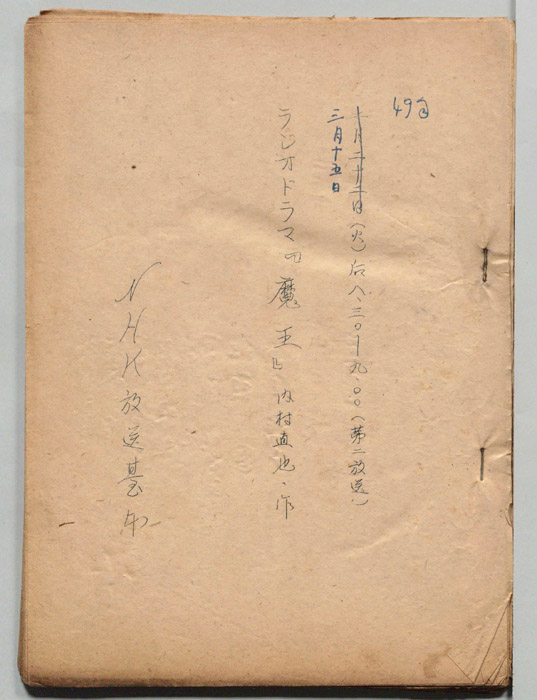 49分
十月二十二日(火)后八、三〇―九、〇〇(第二放送)
三月十五日
ラジオドラマ『魔王』内村直也・作
NHK放送